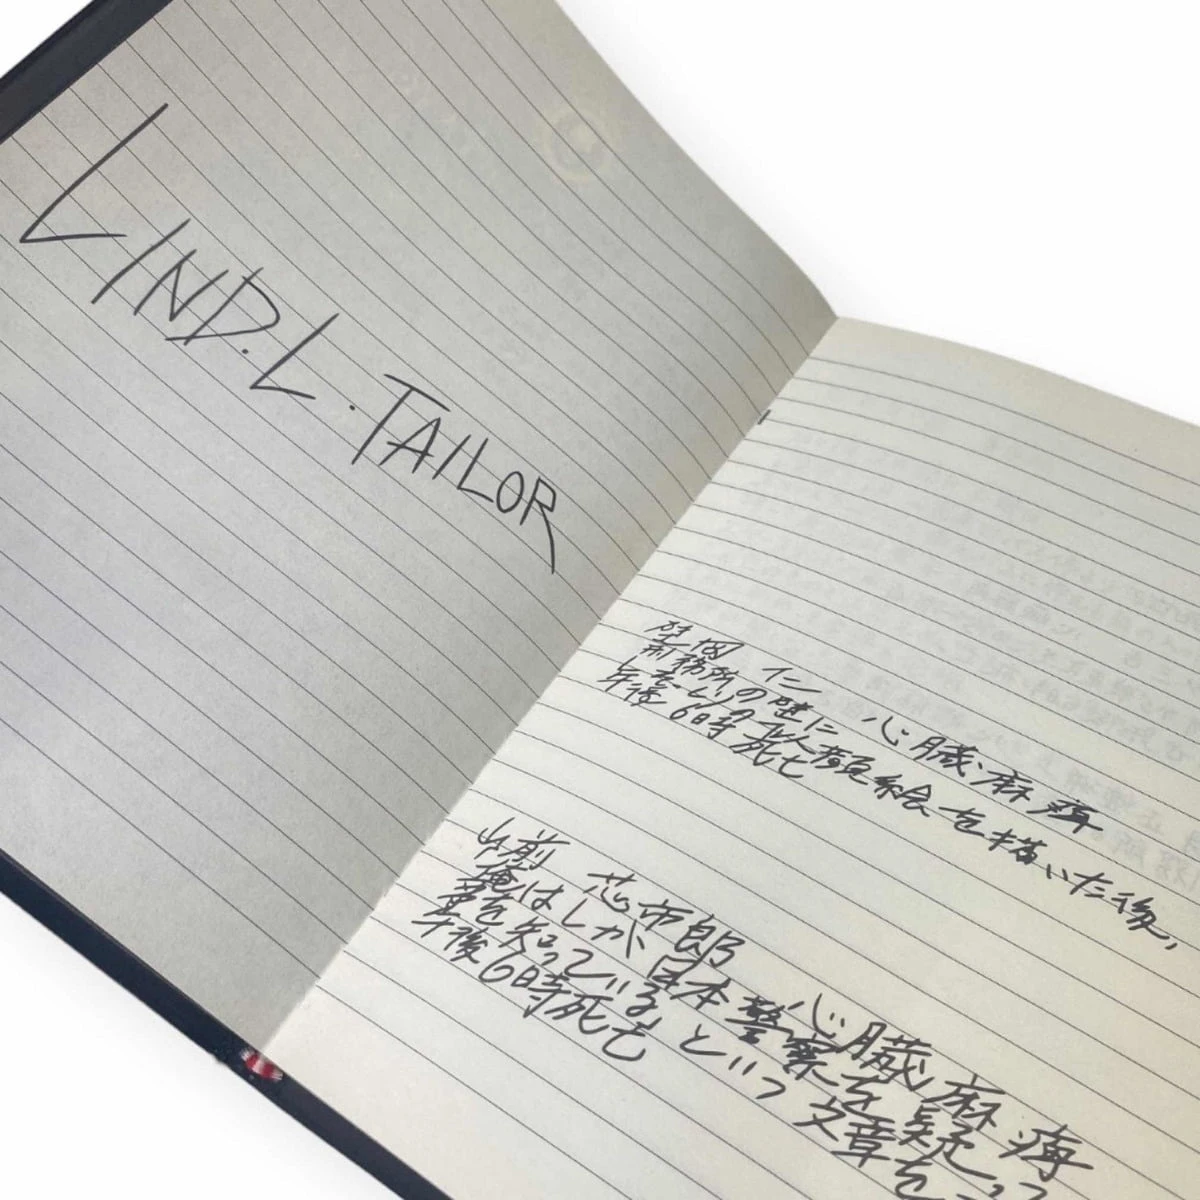 LIND.L.TAILOR
仁 心臓麻痺
刑務所の壁に 似顔絵を描いた後、
午後6時死亡
心臓麻痺
俺はしが、日本警察を疑っ
を知っている という文章を
午後6時死亡